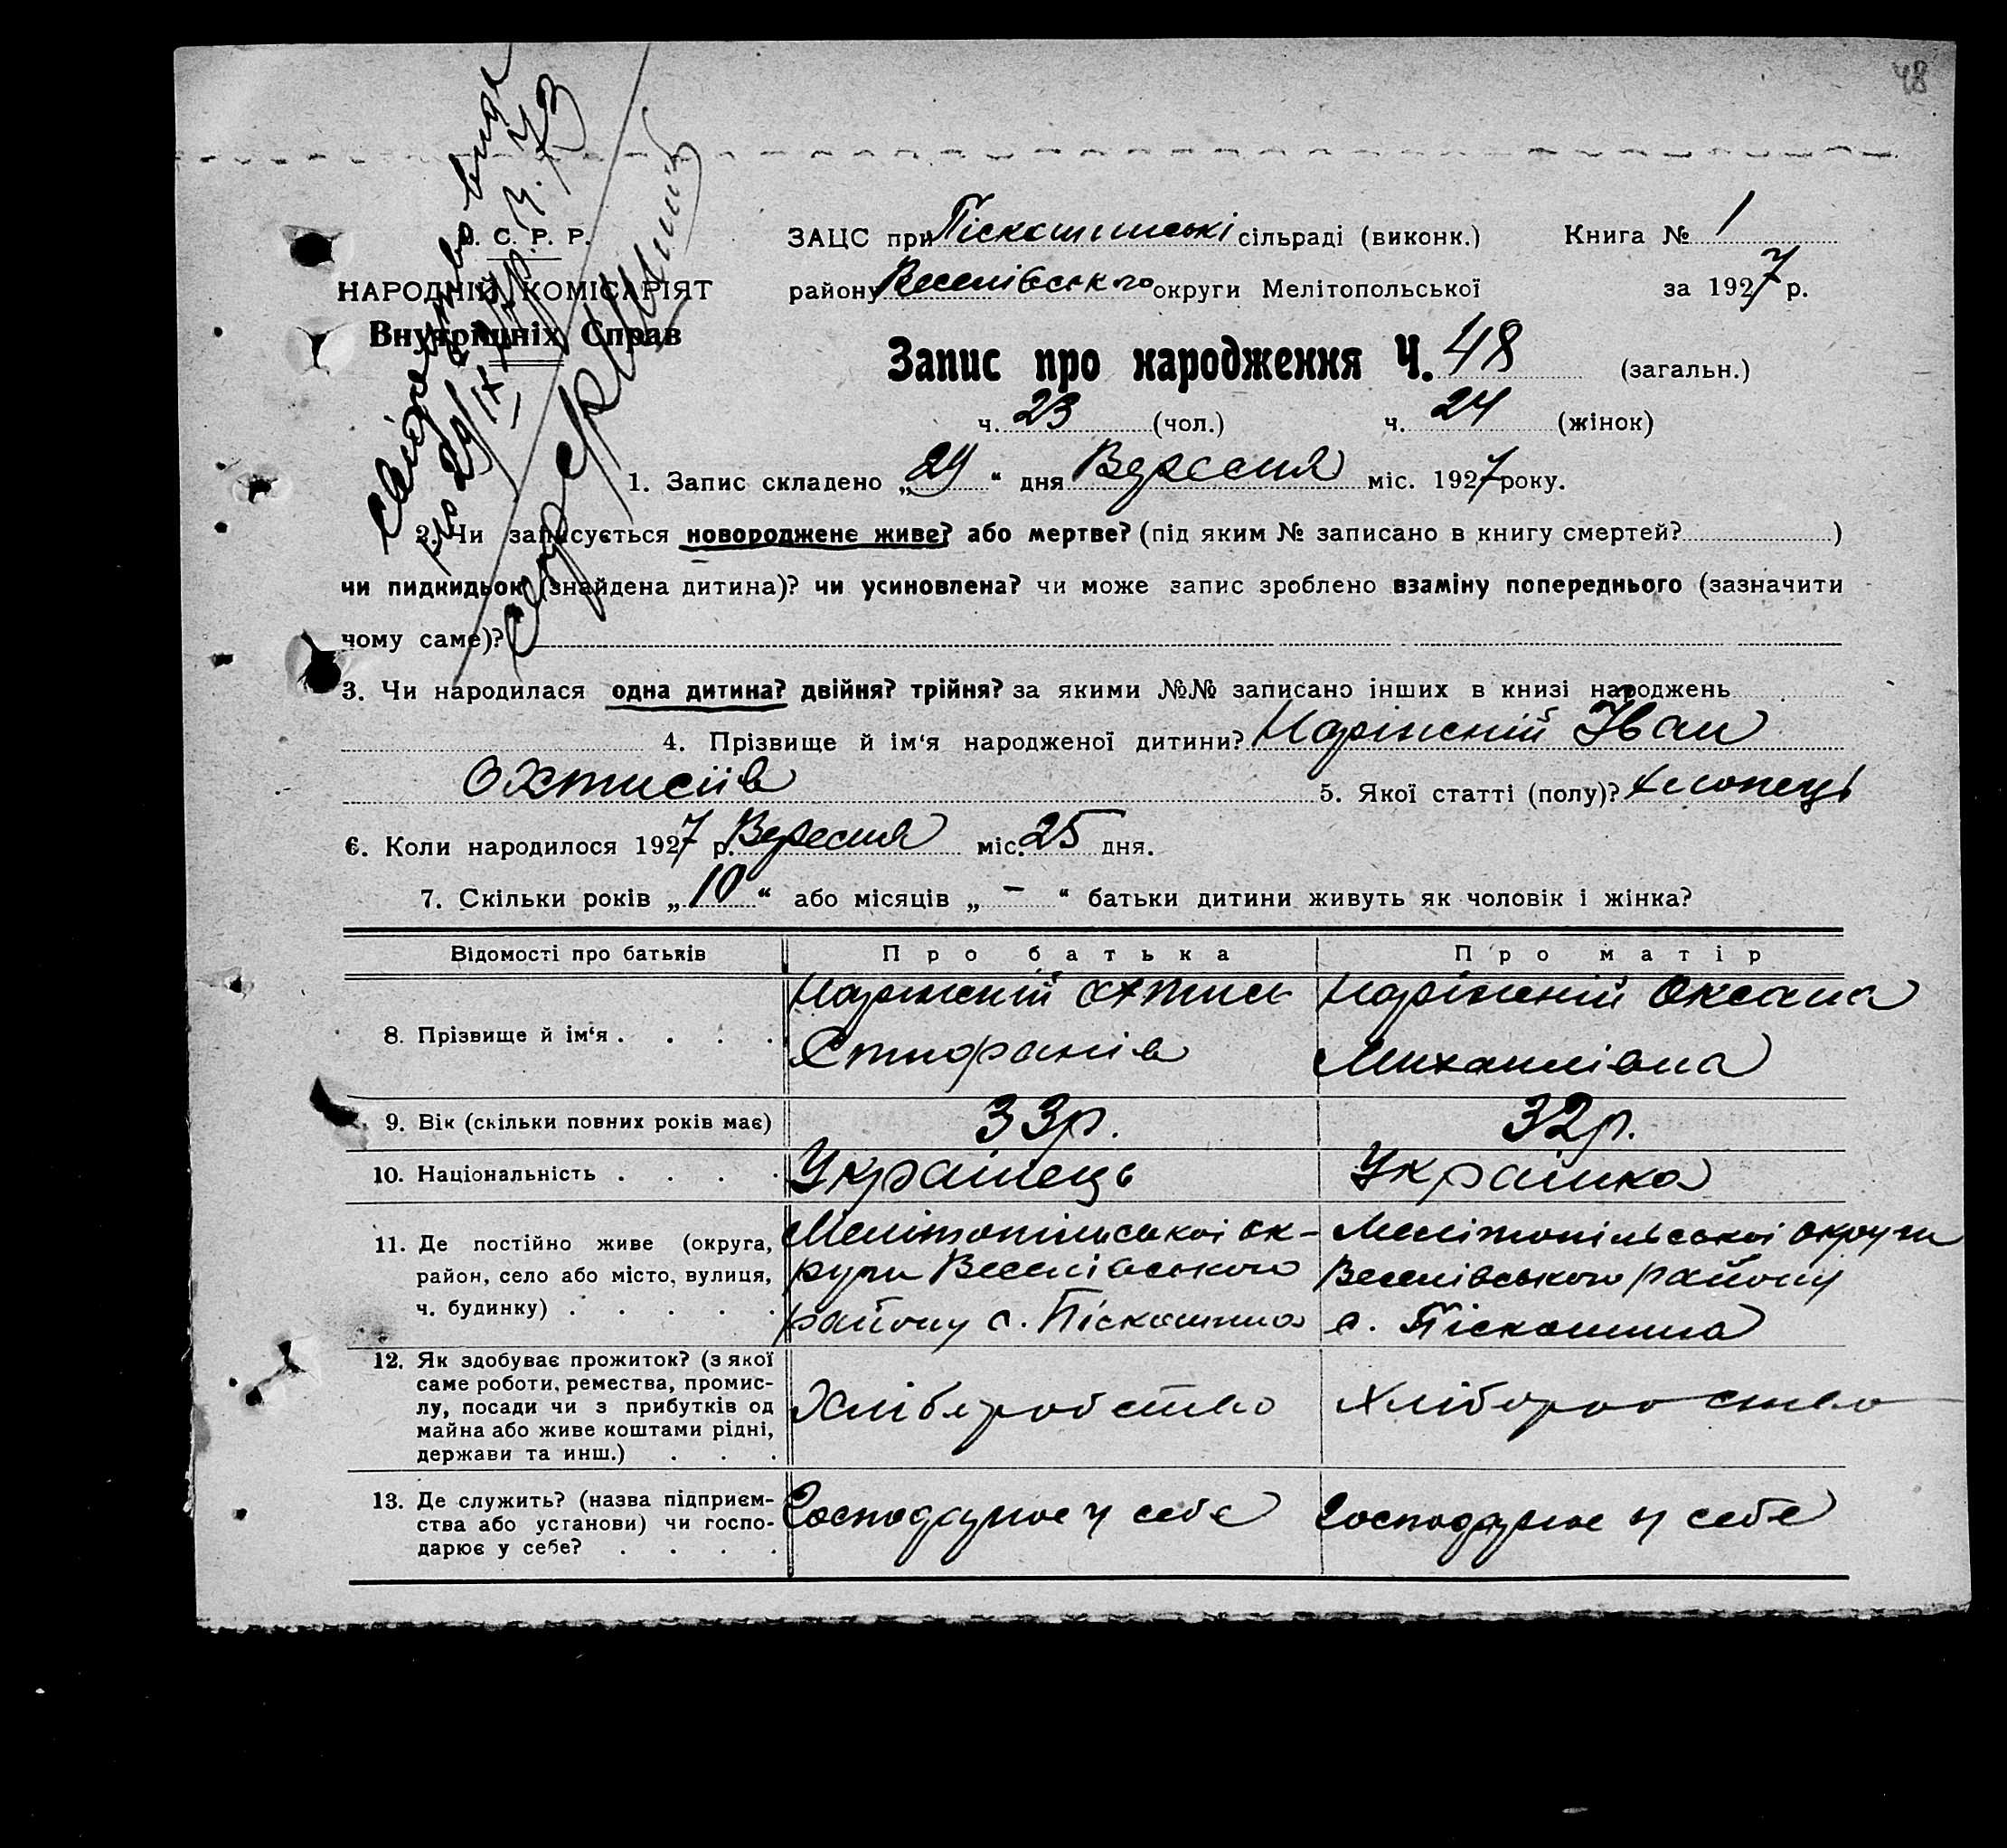 48
С. Р. Р.
НАРОДНІЙ КОМІСАРІЯТ
Внутрішніх Справ
ЗАЦС при Піскошинські сільраді (виконк.) Книга № 1
району Веселівського округи Мелітопольської за 1927 р.
Запис про народження Ч. 48 (загальн.)
ч. 23 (чол.) ч. 24 (жінок)
1. Запис складено „29“ дня Вересня міс. 1927 року.
2. Чи записується новороджене живе? або мертве? (під яким № записано в книгу смертей? )
чи пидкидьок (знайдена дитина)? чи усиновлена? чи може запис зроблено взаміну попереднього (зазначити
чому саме)?
3. Чи народилася одна дитина? двійня? трійня? за якими №№ записано інших в книзі народжень
4. Прізвище й ім‘я народженої дитини? Наріжній Іван
Охтисіїв 5. Якої статті (полу)? хлопець
6. Коли народилося 1927 р. Вересня міс. 25 дня.
7. Скільки років „10“ або місяців „–“ батьки дитини живуть як чоловік і жінка?
Відомості про батьків Про батька Про матір
8. Прізвище й ім‘я . . . . Наріжній Охтись Наріжній Оксана
Михайлівна
9. Вік (скільки повних років має) 33р. 32р.
10. Національність . . . . Українець Українка
11. Де постійно живе (округа, район, село або місто, вулиця, ч. будинку) . . . . .
Мелітопільської ок- Мелітопільської округи
руги Веселівського Веселівського району
району с. Піскошина с. Піскошина
12. Як здобуває прожиток? (з якої
саме роботи, ремества, промис-
лу, посади чи з прибутків од
майна або живе коштами рідні,
держави та инш.) . . .
Хліборобство Хліборобство
13. Де служить? (назва підприєм-
ства або установи) чи госпо-
дарює у себе? . . . .
Господарює у себе Господарює у себе